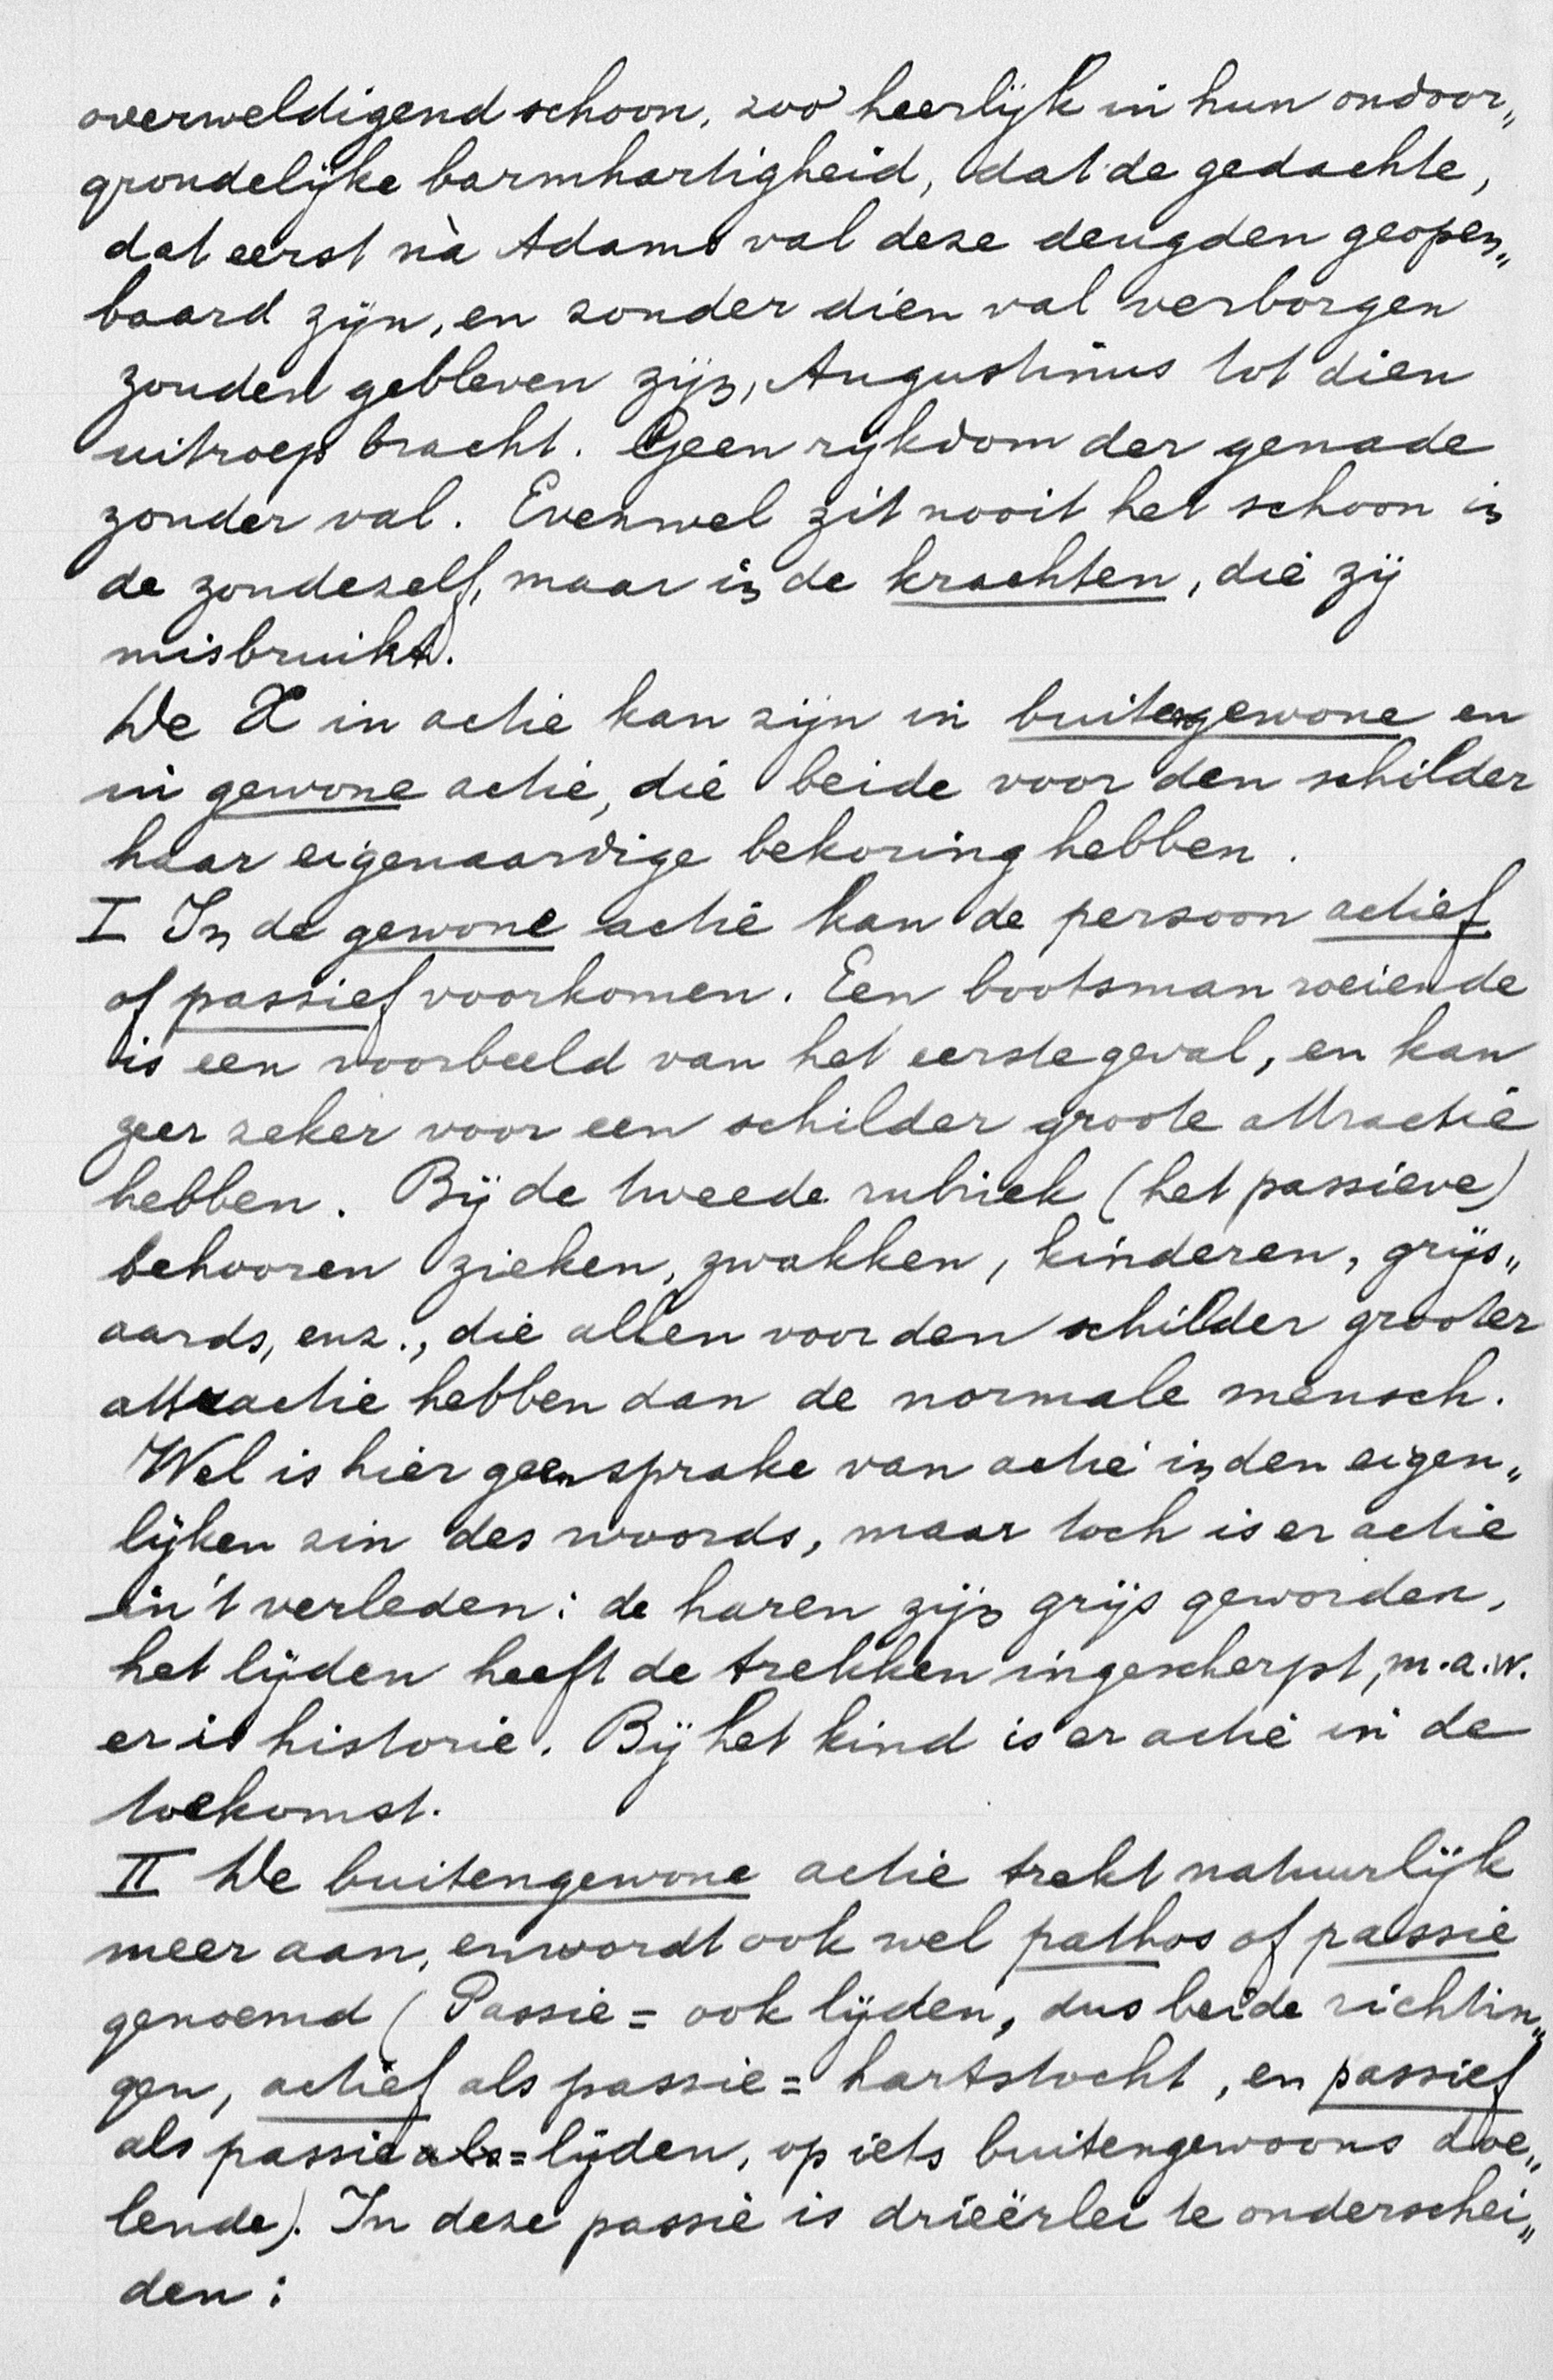 overweldigend schoon, zoo heerlijk in hun ondoor„
grondelijke barmhartigheid, dat de gedachte,
dat eerst nà Adams val deze deugden geopen„
baard zijn, en zonder dien val verborgen
zouden gebleven zijn, Augustinus tot dien
uitroep bracht. Geen rijkdom der genade
zonder val. Evenwel zit nooit het schoon in
de zondezelf, maar in de krachten, die zij
misbruikt.
De X in actie kan zijn in buitengewone en
in gewone actie, die beide voor den schilder
haar eigenaardige bekoring hebben.
I In de gewone actie kan de persoon actief
of passief voorkomen. Een bootsman roeiende
is een voorbeeld van het eerste geval, en kan
zeer zeker voor een schilder groote attractie
hebben. Bij de tweede rubriek (het passieve)
behooren zieken, zwakken, kinderen, grijs„
aards, enz., die allen voor den schilder grooter
attractie hebben dan de normale mensch.
Wel is hier geen sprake van actie in den eigen„
lijken zin des woords, maar toch is er actie
in 't verleden: de haren zijn grijs geworden,
het lijden heeft de trekken ingescherpt, m.a.w.
er is historie. Bij het kind is er actie in de
toekomst.
II De buitengewone actie trekt natuurlijk
meer aan, en wordt ook wel pathos of passie
genoemd (Passie = ook lijden, dus beide richtin„
gen, actief als passie = hartstocht, en passief
als passie als = lijden, op iets buitengewoons doe„
lende). In deze passie is drieërlei te onderschei„
den: